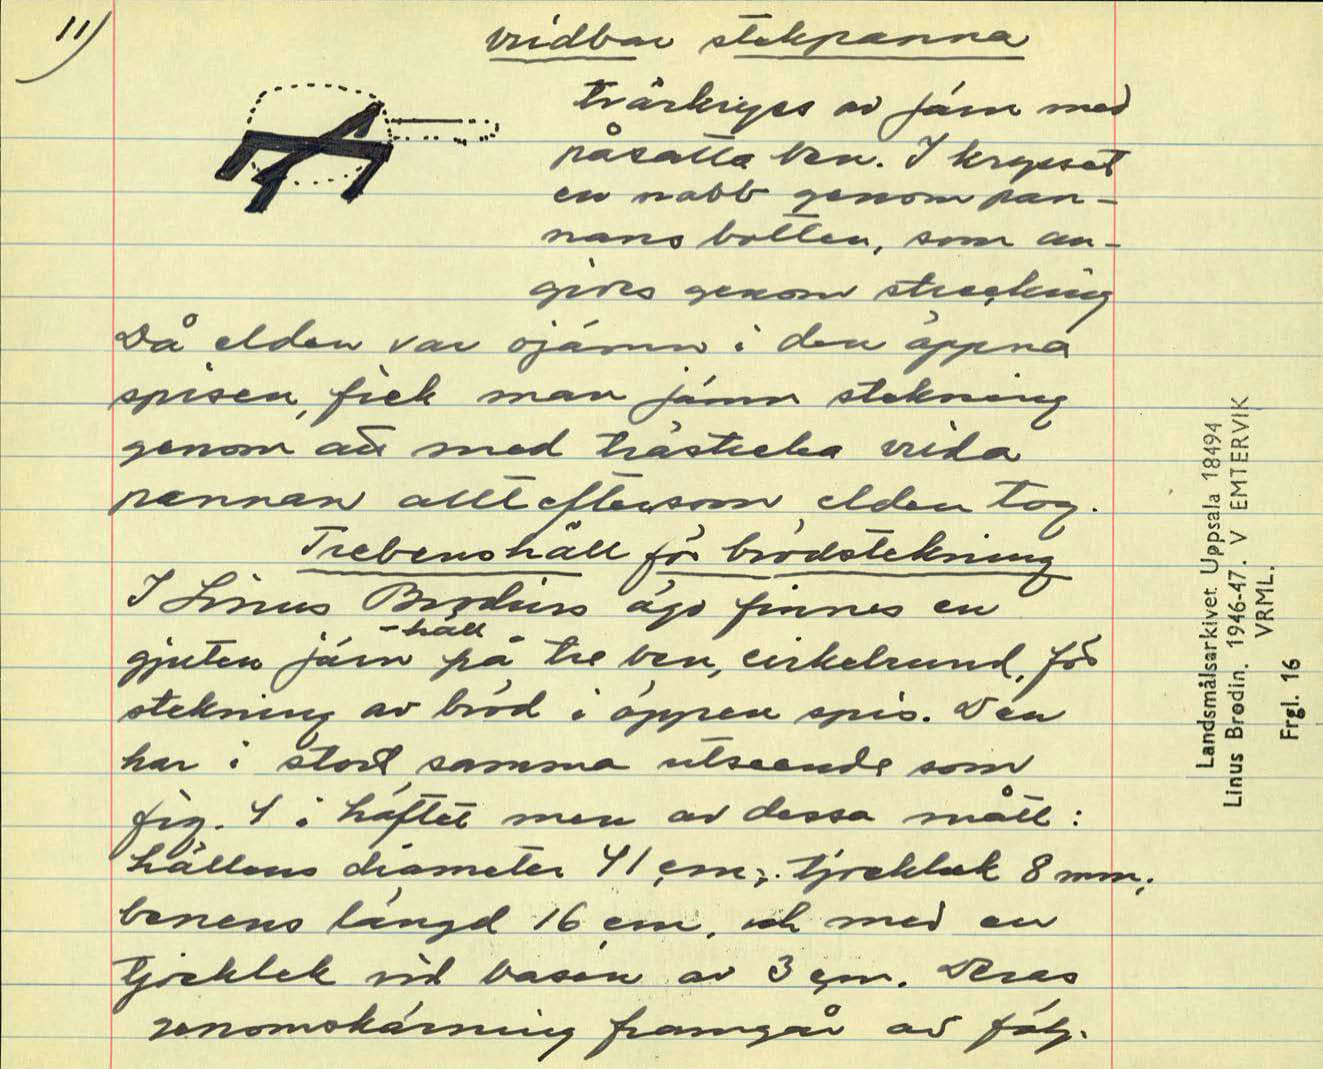 11)
vridbar stekpanna
tvärkryss av järn med
påsatta ben. I krysset
en nabb genom pan-
nans botten, som an-
gives genom streckning
Då elden var ojämn i den öppna
spisen, fick man jämn stekning
genom att med trästicka vrida
pannan allt eftersom elden tog.
Trebenshäll för brödstekning
I Linus Brodins ägo finnes en
-häll-
gjuten järn på tre ben, cirkelrund, för
stekning av bröd i öppen spis. Den
har i stort samma utseende som
fig. 4 i häftet men av dessa mått:
hällens diameter 41 cm; tjocklek 8 mm;
benens längd 16 cm, och med en
tjocklek vid basen av 3 cm. Deras
genomskärning framgår av följ.
Landsmålsarkivet Uppsala 18494
Linus Brodin. 1946-47. V EMTERVIK
VRML.
Frgl. 16